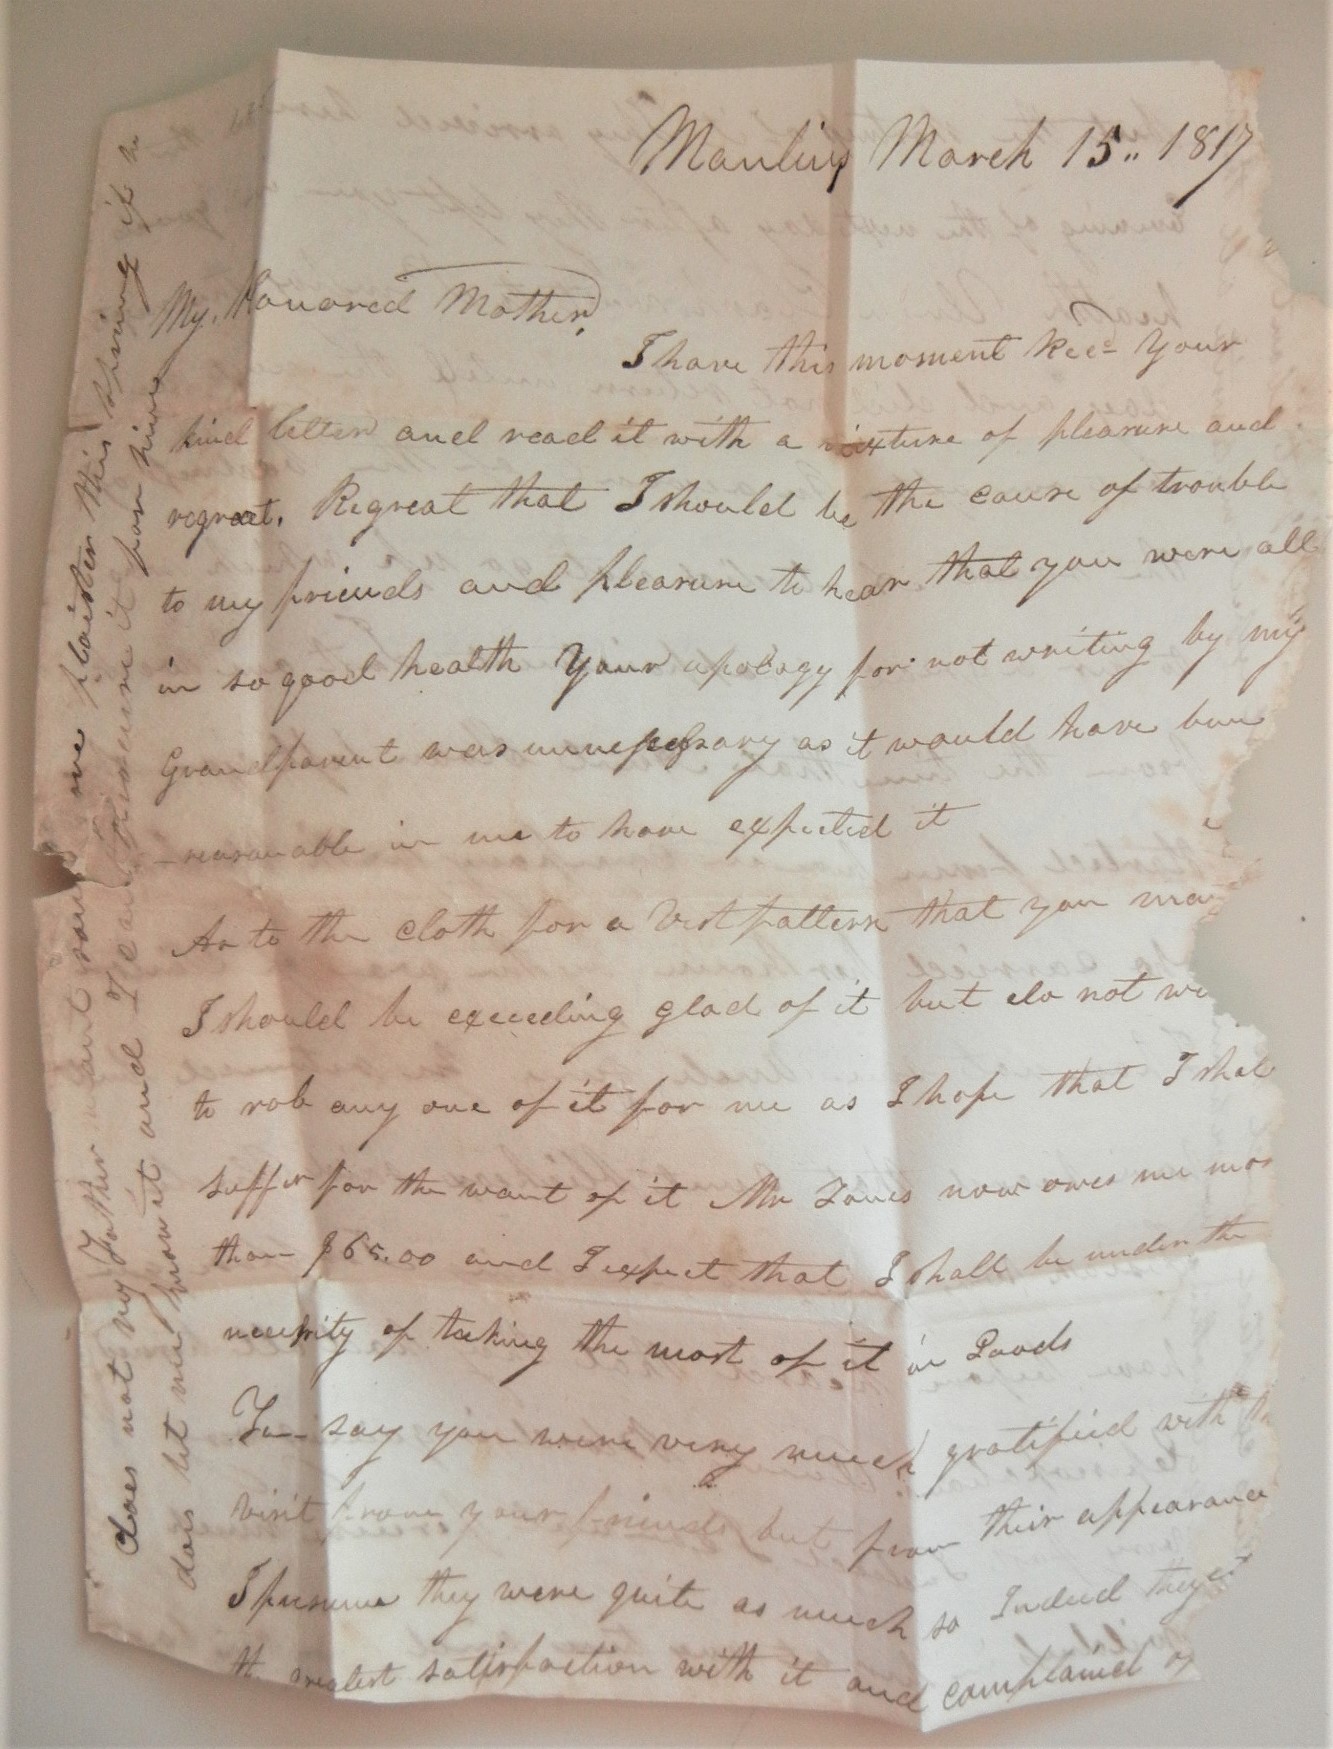 Manlius March 15,, 1817
My. Honoured Mother,
I have this moment Rec- Your
kind letter and read it with a mixture of pleasure and
regreat. Regreat that I should be the cause of trouble
to my friends and pleasure to hear that you were all
in so good health Your apology for not writing by my
Grandparent was unnecessary as it would have been
-reasonable in me to have expected it
As to the cloth for a Vest pattern that you ma
I should be exceeding glad of it but do not wi
to rob any one of it for me as I hope that I shal
suffer for the want of it Mr Jones now owes me mor
than $65.00 and I expect that I shall be under the
necessity of taking the most of it in Goods
You say you were very much gratified with th
visit from your friends but from their appearance
I presume they were quite as much so Indeed they
the greatest satisfaction with it and complained of
does not my Father want some more plaister this spring if he
does let me know it and I can procure it for him